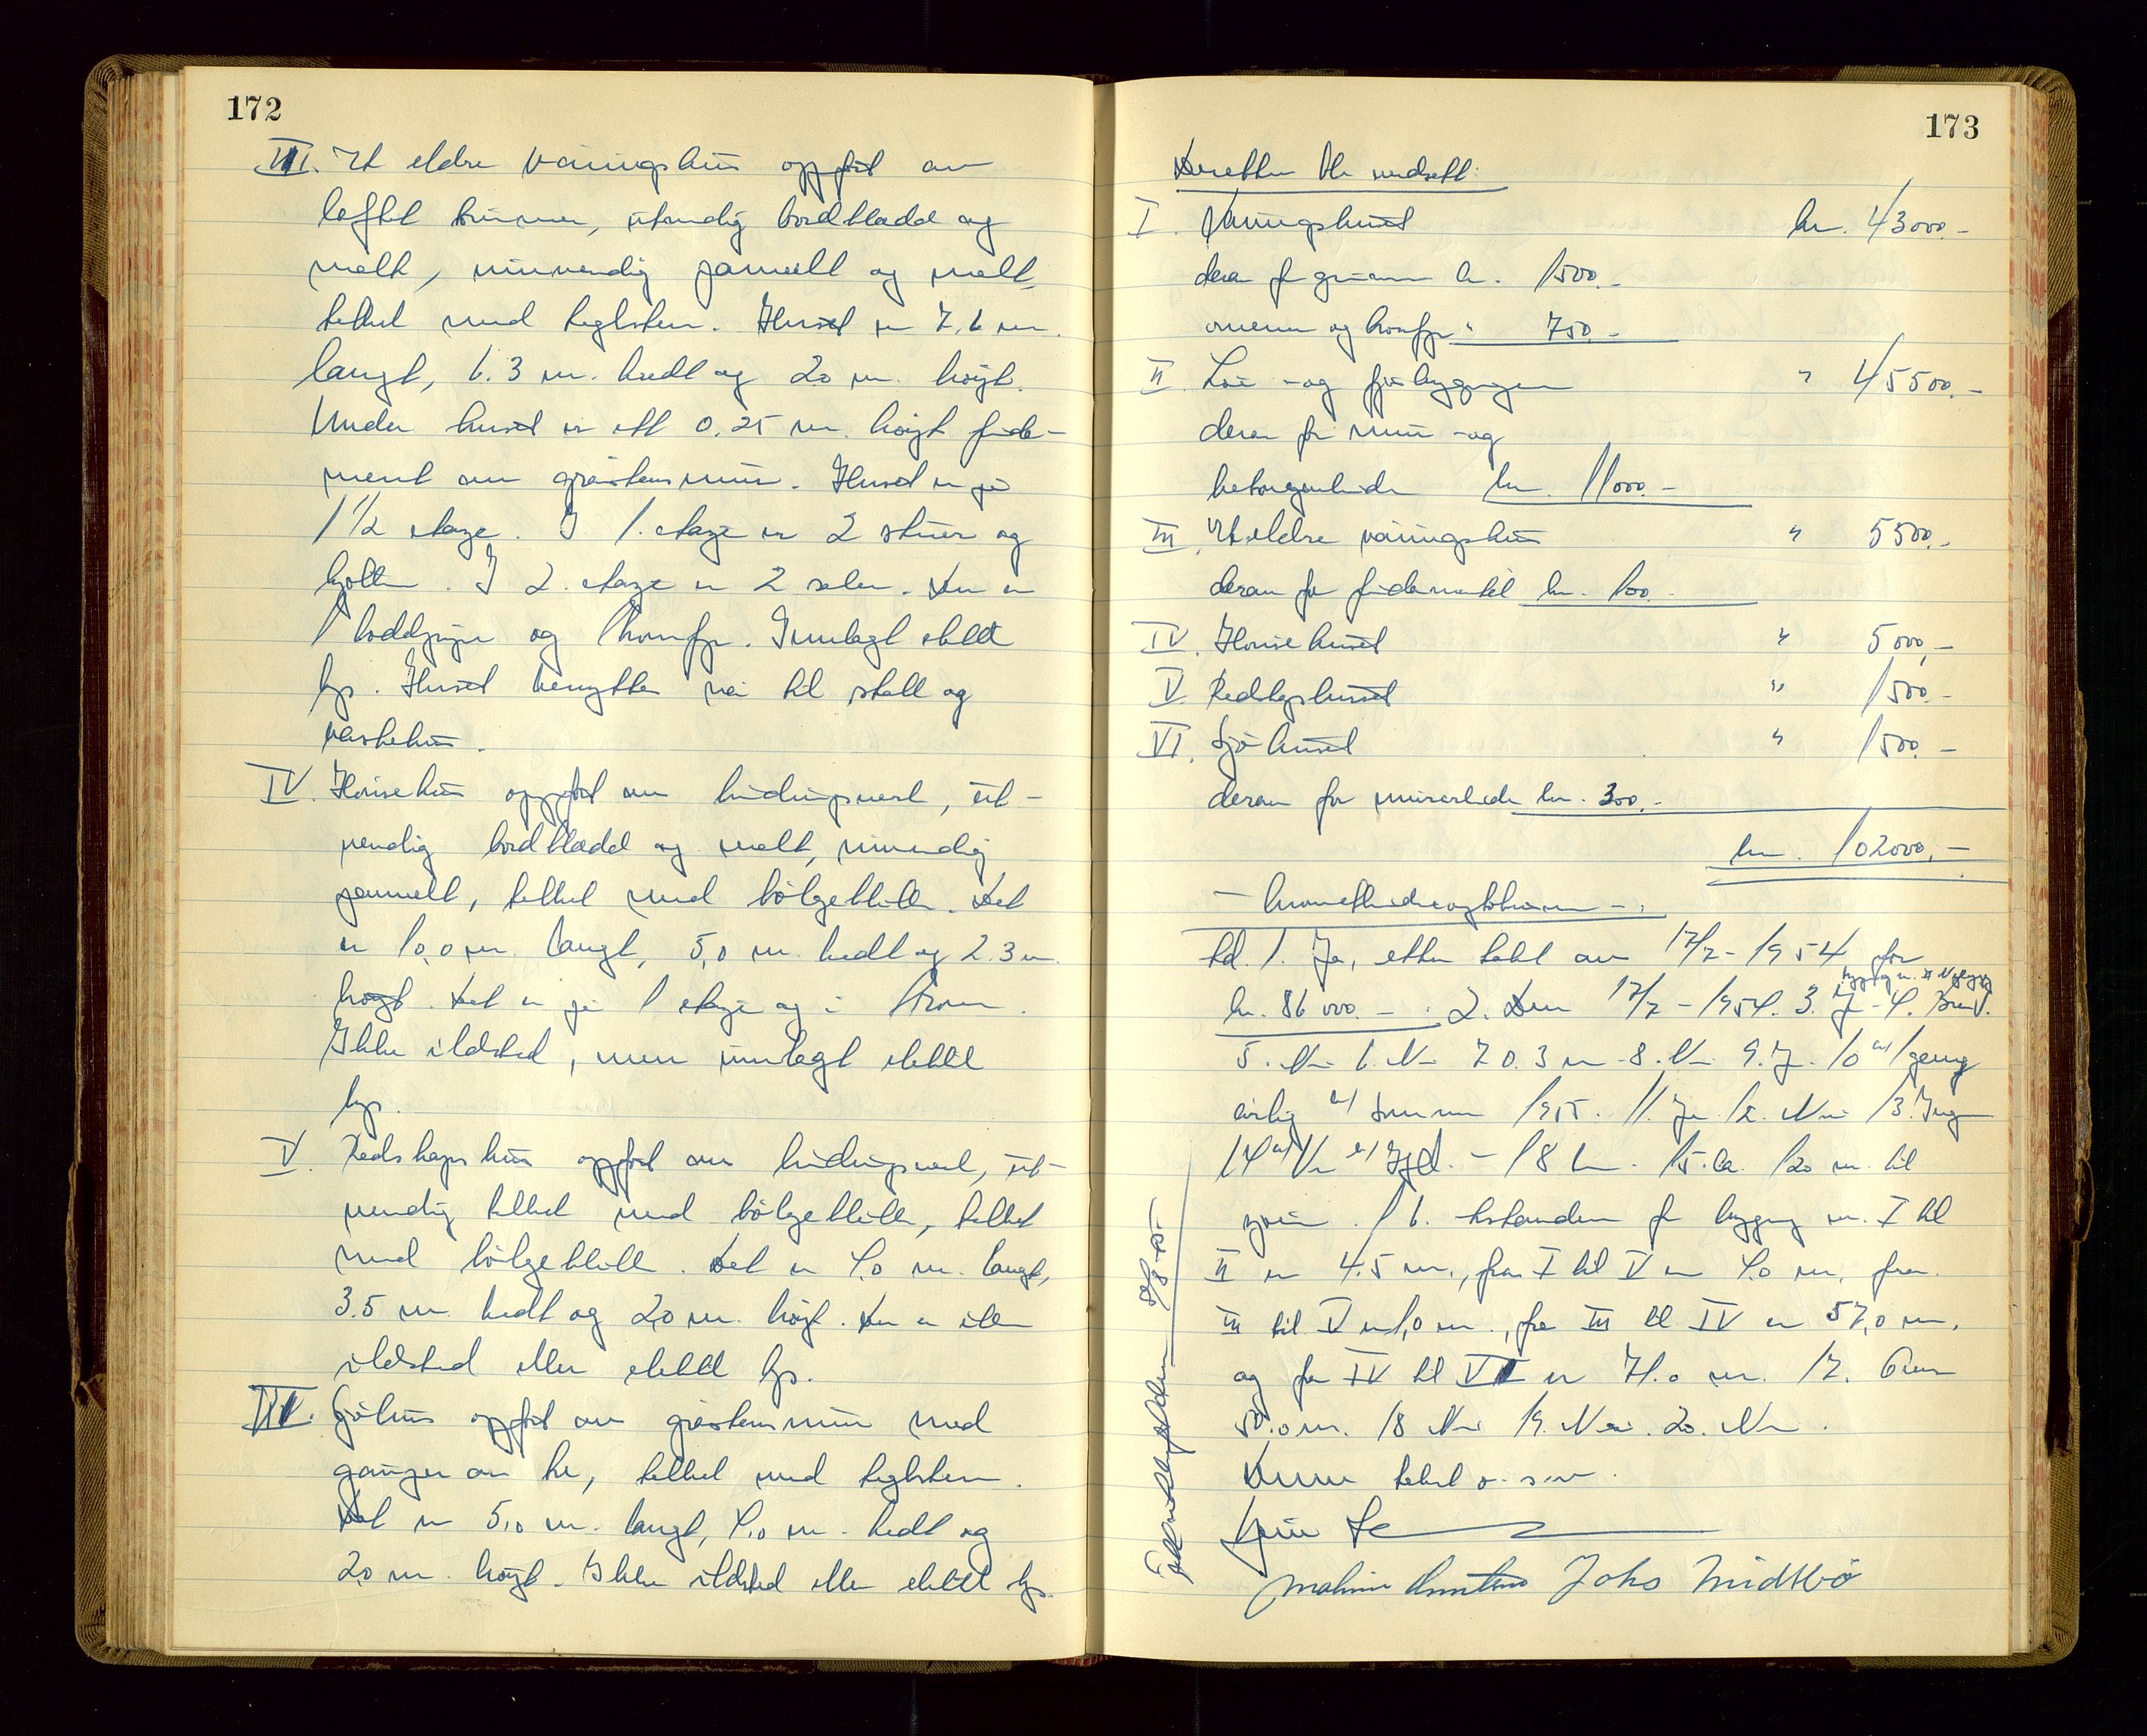 172
III. Et eldre våningshus oppført av
laftet tømmer, utvendig bordkledd og
malt, innvendig panelt og malt,
tekket med teglsten. Huset er 7.6 m.
langt, 6.3 m. bredt og 2.0 m. høgt.
Under huset er ett 0,25 m. høgt funda-
ment av gråstensmur. Huset er på
1 1/2 etage. I 1. etage er 2 stuer og
kjøkken. I 2. etage er 2 saler. Der er
1 komfyr. Innlagt elektr.
lys. Huset benyttes nå til stall og
vaskehus.
IV. Hønsehus oppført av bindingsverk, ut-
vendig bordkledd og malt, innvendig
panelt, tekket med bølgeblikk. Det
er 10,0 m. langt, 5,0 m. bredt og 2.3 m.
høgt. Det er på 1 etage og 1 rom.
Ikke ildsted, men innlagt elektr.
lys.
V. Redskapshus oppført av bindingsverk, ut-
vendig tekket med bølgeblikk, tekket
med bølgeblikk. Det er 4,0 m. langt,
3.5 m. bredt og 2,0 m. høgt. Der er ikke
ildsted eller elektr. lys.
VI. Sjøhus oppført av gråstensmur med
gavler av tre, tekket med teglsten.
Det er 5,0 m. langt, 4,0 m. bredt og
2,0 m. høgt. Ikke ildsted eller elektr. lys.
173
Deretter ble verdsatt:
I. Våningshuset kr. 43000.-
derav for grunnmur kr. 1500.-
ovner og komfyr " 750.-
II. Løe- og fjøsbygningen " 45500.-
derav for mur- og
betongarbeide kr. 11000.-
III. Et eldre våningshus " 5500.-
derav for fundamentet kr. 100.-
IV. Hønsehuset " 5000,-
V. Redskapshuset " 1500.-
VI. Sjøhuset " 1500.-
derav for murarbeide kr. 300.-
kr. 102000,-
- Branntakstskjema -:
td. 1. Ja, etter takst av 17/7-1954 for
kr. 86000.- 2. Den 17/7-1954. 3. Ja 4.
5. Nei 6. Nei 7. 0.3 m 8. Nei 9. Ja 10 a/ 1 gang
årlig b/ Sommeren 1955. 11. Ja 12. Nei 13. Ingen
14 a/ b/ - 18 15. Ca. 120 m. til
sjøen. 16. Avstanden fra bygning nr. I til
II er 4.5 m., fra I til V er 4.0 m, fra
III til V er 1,0 m., fra III til IV er 57,0 m,
og fra IV til VI er 71.0 m. 17. Over
50.0 m. 18 Nei 19. Nei. 20. Nei.
Denne takst o.s.v.
Johs Midtbø